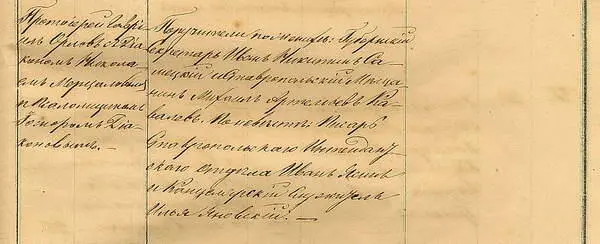 Протоіерей Гаврі-
илъ Орловъ съ Діа-
кономъ Никола-
емъ
и Псаломщикомъ
Діа-
коновымъ. —
Поручители по женихѣ: Губернскій
Секретарь Иванъ Никитинъ Са-
цкій и Ставропольскій Мѣща-
нинъ Михаилъ Артемьевъ Ка-
валовъ. По невѣстѣ: Писарь
Ставропольскаго Интендант-
скаго отдѣла Иванъ
и Канцелярскій Служитель
Илья Яновскій. —